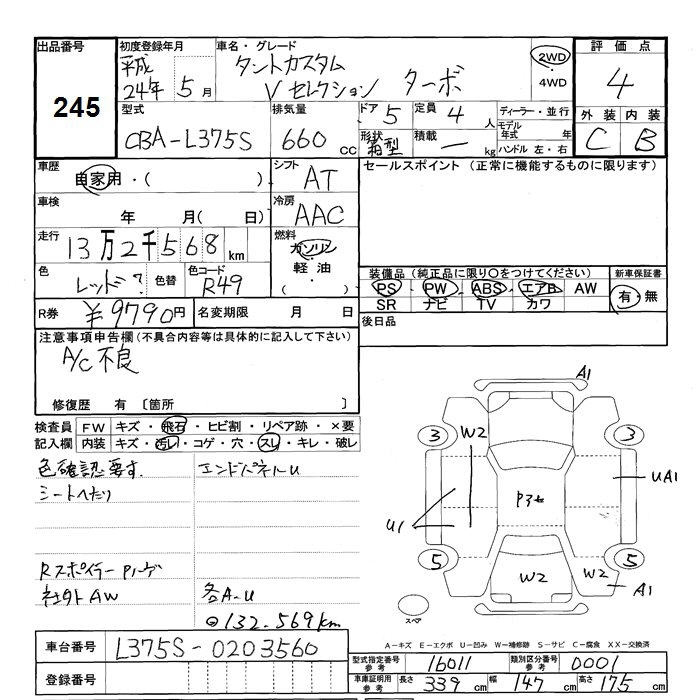 出品番号
245
初度登録年月
平成
24年 5月
車名・グレード
タントカスタム
Vセレクション ターボ
2WD
・
4WD
評価点
4
外装 内装
C B
型式
CBA-L375S
排気量
660 cc
ドア 5
形状 箱型
定員 4人
積載 ー kg
ディーラー・並行
モデル年式 年
ハンドル 左・右
車歴
自家用・( )
シフト
AT
セールスポイント (正常に機能するものに限ります)
車検
年 月( 日)
冷房
AAC
走行
13万2千568 km
燃料
ガソリン
軽油・
( )
色
レッド?
色替
色コード
R49
装備品(純正品に限り○をつけてください)
PS・PW・ABS・エアB・AW
SR ナビ TV カワ
新車保証書
有・無
R券
¥9790円
名変期限 月 日
後日品
注意事項申告欄(不具合内容等は具体的に記入して下さい)
A/C不良
修復歴 有 〔箇所 〕
検査員
記入欄
FW キズ・飛石・ヒビ割・リペア跡・×要
内装 キズ・汚い・コゲ・穴・スレ・キレ・破レ
色確認要す.
エンドパネルU
シートへたり
Rスポイラー
社外AW
各A-U
132.569km
A1
3
3
W2
UA1
U1
5
5
W2
W2
A1
スペア
A-キズ E-エクボ U-凹み W-補修跡 S-サビ C-腐食 XX-交換済
車台番号
L375S-0203560
登録番号
型式指定番号 参考
16011
類別区分番号 参考
0001
車庫証明用 参考
長さ 339 cm 幅 147 cm 高さ 175 cm